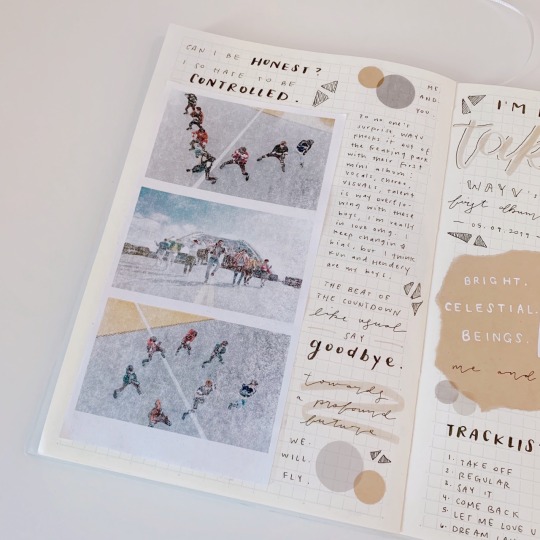 CAN I BE HONEST?
I SO HATE TO BE
CONTROLLED.
ME
AND
YOU
To no one's
surprise, WAYV
knocks it out of
the freaking park
with their first
mini album.
vocals, choreo,
visuals, talent
is way overflo-
wing with these
boys. I'm really
in love omg. i
keep changing
bias, but I think
Kun and Hendery
are my boys.
THE BEAT OF
THE COUNTDOWN
like usual
SAY
goodbye.
towards
a profound
future
WE.
WILL.
FLY.
I'M
WAYV's
first album
- 05.09.2019 -
BRIGHT.
CELESTIAL.
BEINGS.
me and
TRACKLIS
1. TAKE OFF
2. REGULAR
3. SAY IT
4. COME BACK
5. LET ME LOVE U
6. DREAM